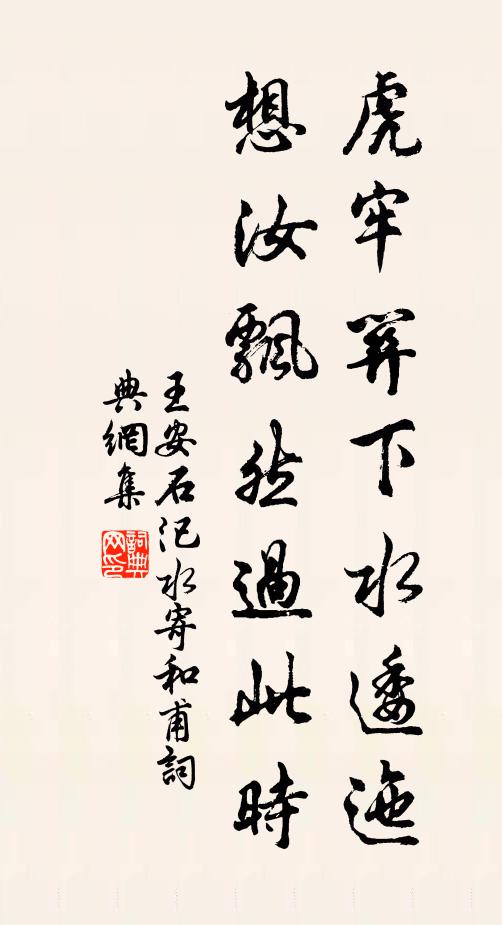 虎牢關下水逶迤
想汝飄然過此時
王安石汜水寄和甫詞
典網集
詞典網印